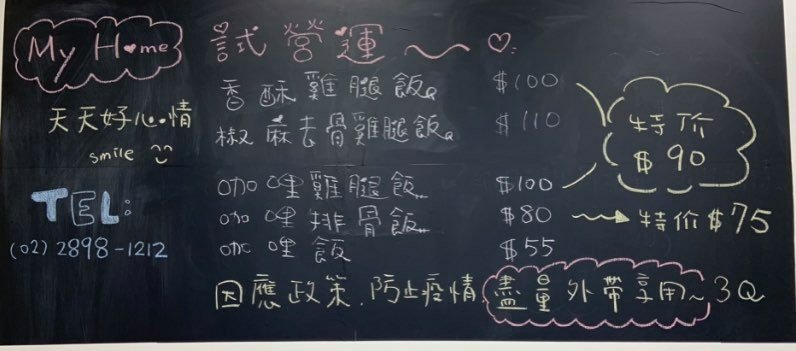 My Home
天天好心情
smile
TEL:
(02) 2898-1212
試營運～
香酥雞腿飯 $100
椒麻去骨雞腿飯 $110
咖哩雞腿飯 $100
特价 $90
咖哩排骨飯 $80 → 特价 $75
咖哩飯 $55
因應政策.防止疫情 盡量外帶享用~3Q